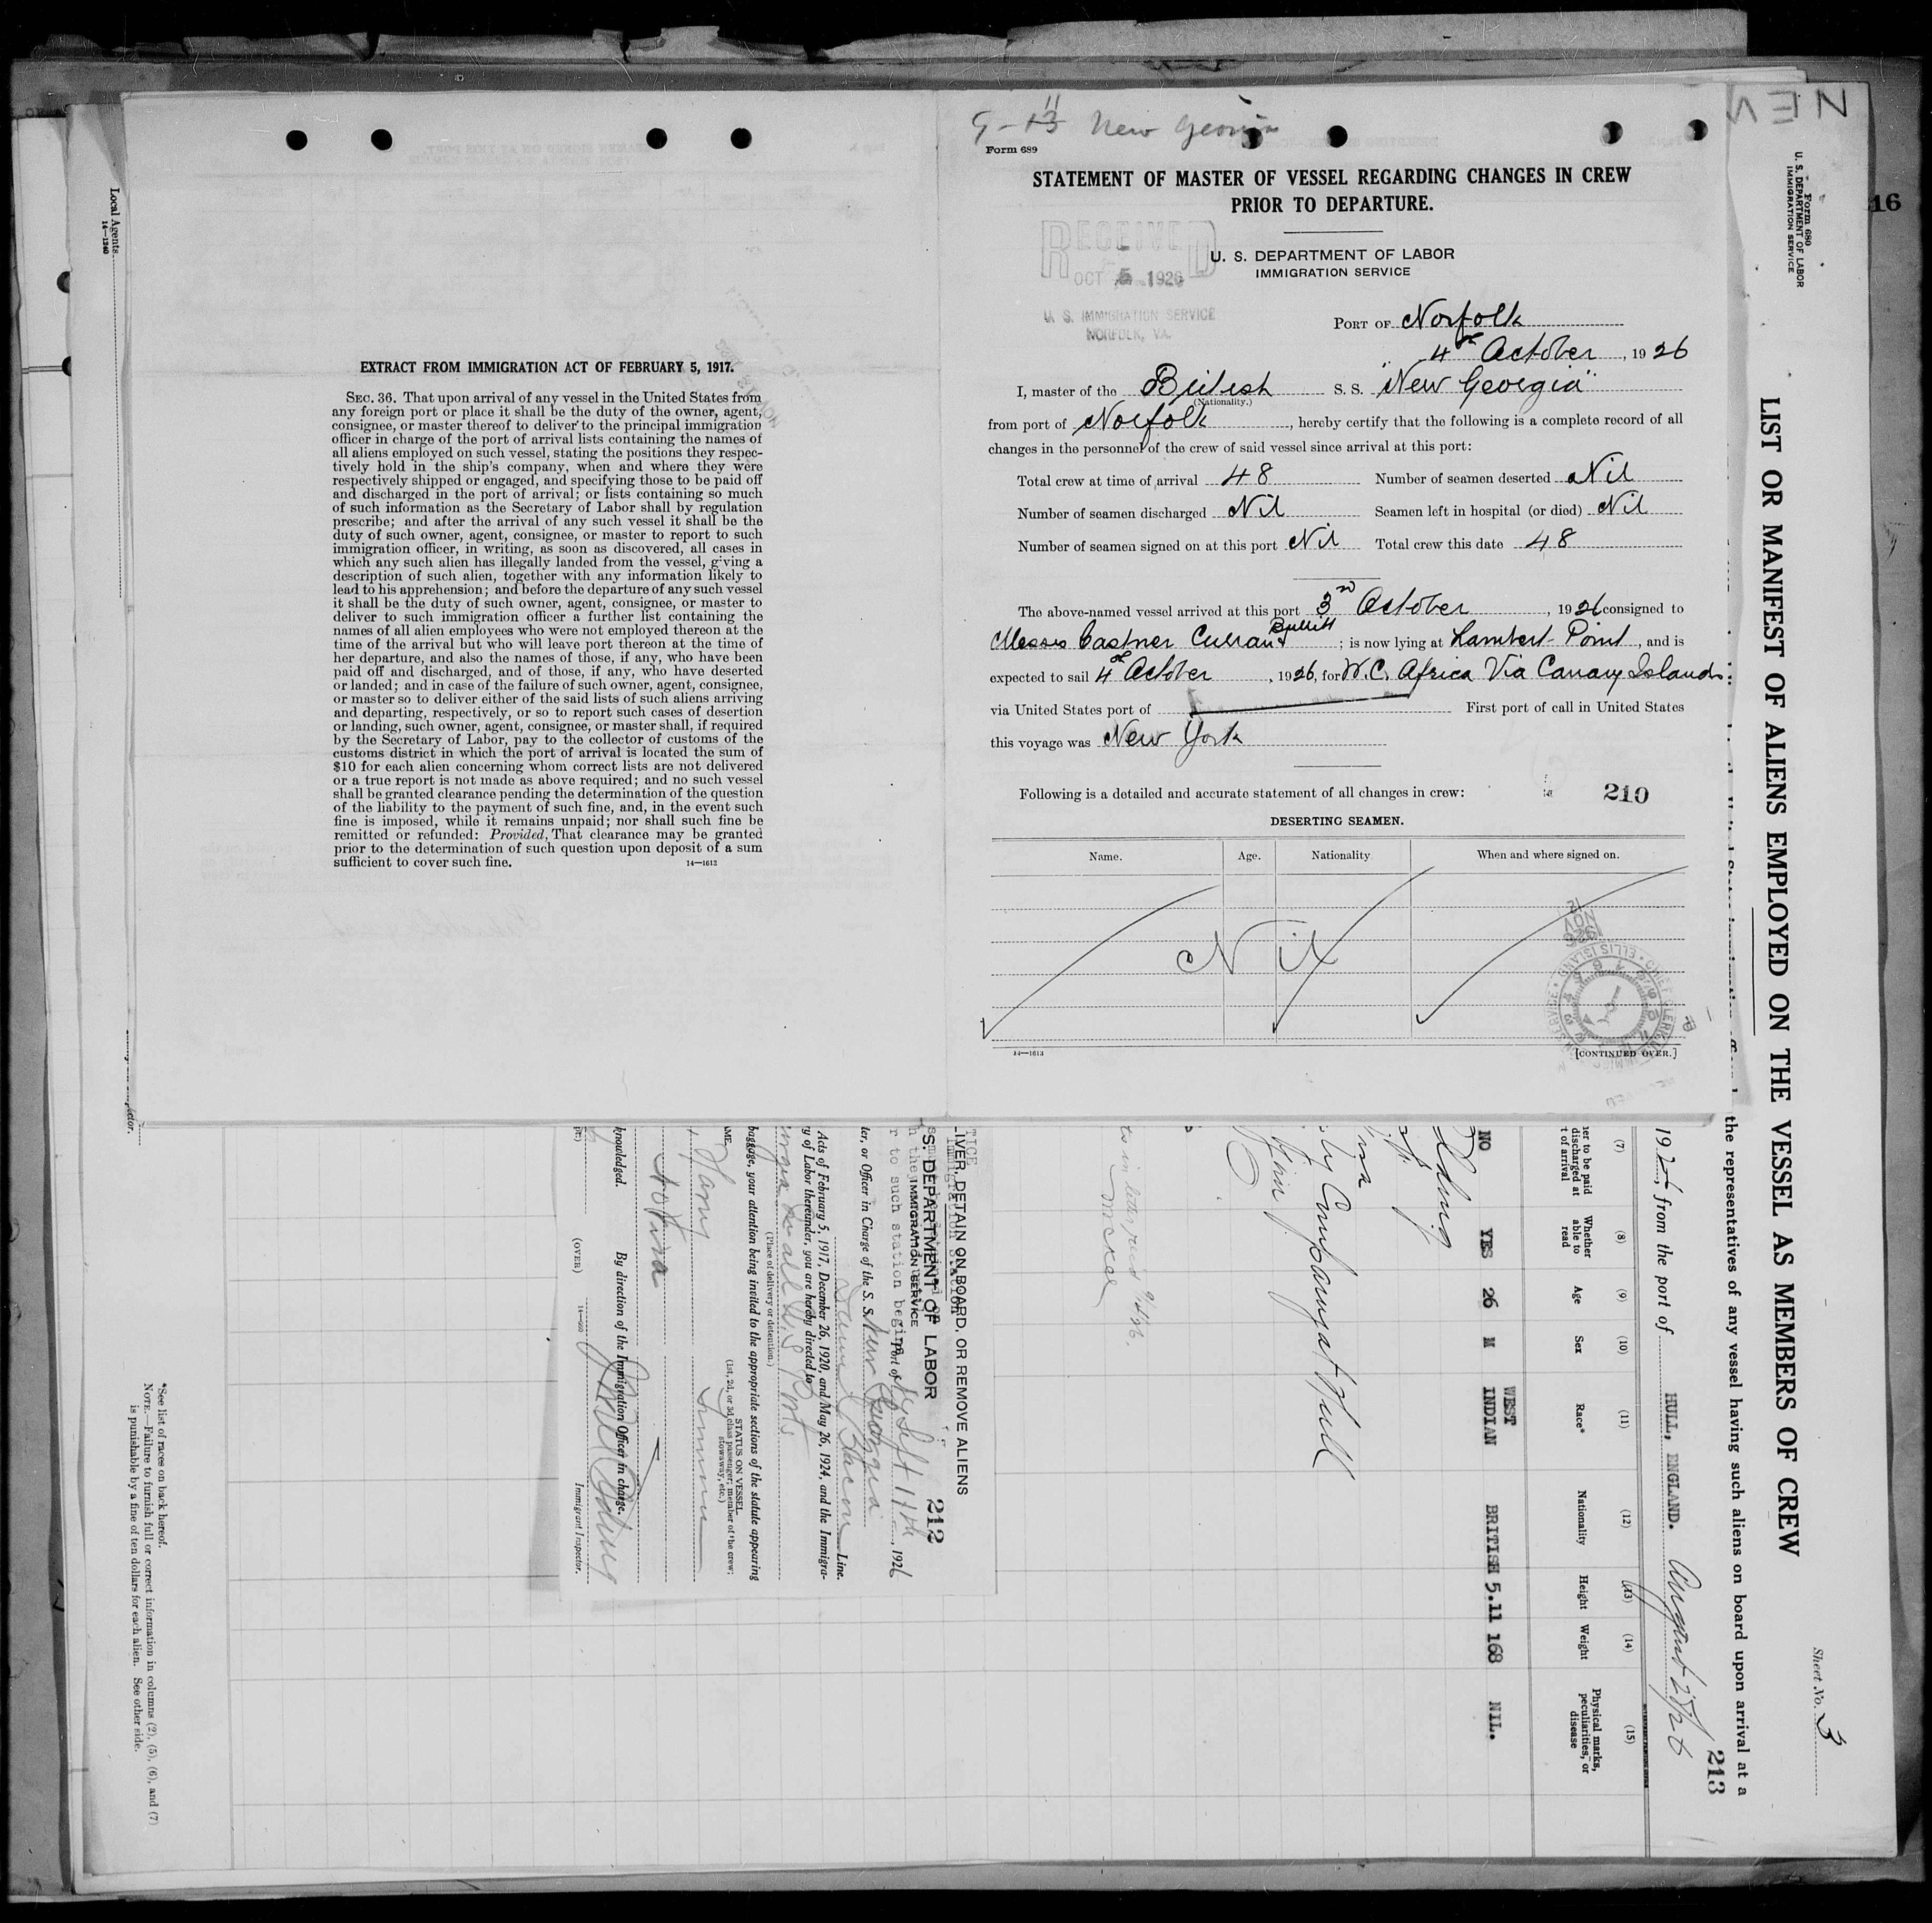 EXTRACT FROM IMMIGRATION ACT OF FEBRUARY 5, 1917.
SEC. 36. That upon arrival of any vessel in the United States from
any foreign port or place it shall be the duty of the owner, agent,
consignee, or master thereof to deliver to the principal immigration
officer in charge of the port of arrival lists containing the names of
all aliens employed on such vessel, stating the positions they respec-
tively hold in the ship's company, when and where they were
respectively shipped or engaged, and specifying those to be paid off
and discharged in the port of arrival; or lists containing so much
of such information as the Secretary of Labor shall by regulation
prescribe; and after the arrival of any such vessel it shall be the
duty of such owner, agent, consignee, or master to report to such
immigration officer, in writing, as soon as discovered, all cases in
which any such alien has illegally landed from the vessel, giving a
description of such alien, together with any information likely to
lead to his apprehension; and before the departure of any such vessel
it shall be the duty of such owner, agent, consignee, or master to
deliver to such immigration officer a further list containing the
names of all alien employees who were not employed thereon at the
time of the arrival but who will leave port thereon at the time of
her departure, and also the names of those, if any, who have been
paid off and discharged, and of those, if any, who have deserted
or landed; and in case of the failure of such owner, agent, consignee,
or master so to deliver either of the said lists of such aliens arriving
and departing, respectively, or so to report such cases of desertion
or landing, such owner, agent, consignee, or master shall, if required
by the Secretary of Labor, pay to the collector of customs of the
customs district in which the port of arrival is located the sum of
$10 for each alien concerning whom correct lists are not delivered
or a true report is not made as above required; and no such vessel
shall be granted clearance pending the determination of the question
of the liability to the payment of such fine, and, in the event such
fine is imposed, while it remains unpaid; nor shall such fine be
remitted or refunded: Provided, That clearance may be granted
prior to the determination of such question upon deposit of a sum
sufficient to cover such fine. 14—1613
New Georgia
Form 689
STATEMENT OF MASTER OF VESSEL REGARDING CHANGES IN CREW
PRIOR TO DEPARTURE.
RECEIVED
OCT 5 1926
U. S. IMMIGRATION SERVICE
NORFOLK, VA.
U. S. DEPARTMENT OF LABOR
IMMIGRATION SERVICE
PORT OF Norfolk
4th October, 1926
I, master of the British S. S. "New Georgia"
(Nationality.)
from port of Norfolk, hereby certify that the following is a complete record of all
changes in the personnel of the crew of said vessel since arrival at this port:
Total crew at time of arrival 48 Number of seamen deserted Nil
Number of seamen discharged Nil Seamen left in hospital (or died) Nil
Number of seamen signed on at this port Nil Total crew this date 48
The above-named vessel arrived at this port 3rd October, 1926 consigned to
Messrs Castner Curran Bullitt; is now lying at Lambert Point, and is
expected to sail 4th October, 1926, for W.C. Africa Via Canary Islands
via United States port of First port of call in United States
this voyage was New York
Following is a detailed and accurate statement of all changes in crew: 210
DESERTING SEAMEN.
Name. Age. Nationality When and where signed on.
Nil
14—1613 [CONTINUED OVER.]
Form 680
U. S. DEPARTMENT OF LABOR
IMMIGRATION SERVICE
16
LIST OR MANIFEST OF ALIENS EMPLOYED ON THE VESSEL AS MEMBERS OF CREW
Sheet No. 3
the representatives of any vessel having such aliens on board upon arrival at a
213
, from the port of HULL, ENGLAND. August 28/26
(7) (8) (9) (10) (11) (12) (13) (14) (15)
Whether able to read Age Sex Race* Nationality Height Weight Physical marks, peculiarities, or disease
NO YES 26 M WEST INDIAN BRITISH 5.11 168 NIL.
Company at Hull
LIVER, DETAIN ON BOARD, OR REMOVE ALIENS
212
S. DEPARTMENT OF LABOR
IMMIGRATION SERVICE
Port of
, 1926
ter, or Officer in Charge of the S. S. New Georgia
Line.
Acts of February 5, 1917, December 26, 1920, and May 26, 1924, and the Immigra-
ry of Labor thereunder, you are hereby directed to
(Place of delivery or detention.)
baggage, your attention being invited to the appropriate sections of the statute appearing
STATUS ON VESSEL
(1st, 2d, or 3d class passenger; member of the crew;
stowaway, etc.)
By direction of the Immigration Officer in charge.
knowledged.
(OVER)
Immigrant Inspector.
*See list of races on back hereof.
NOTE.—Failure to furnish full or correct information in columns (2), (5), (6), and (7)
is punishable by a fine of ten dollars for each alien. See other side.
Local Agents
14—1240